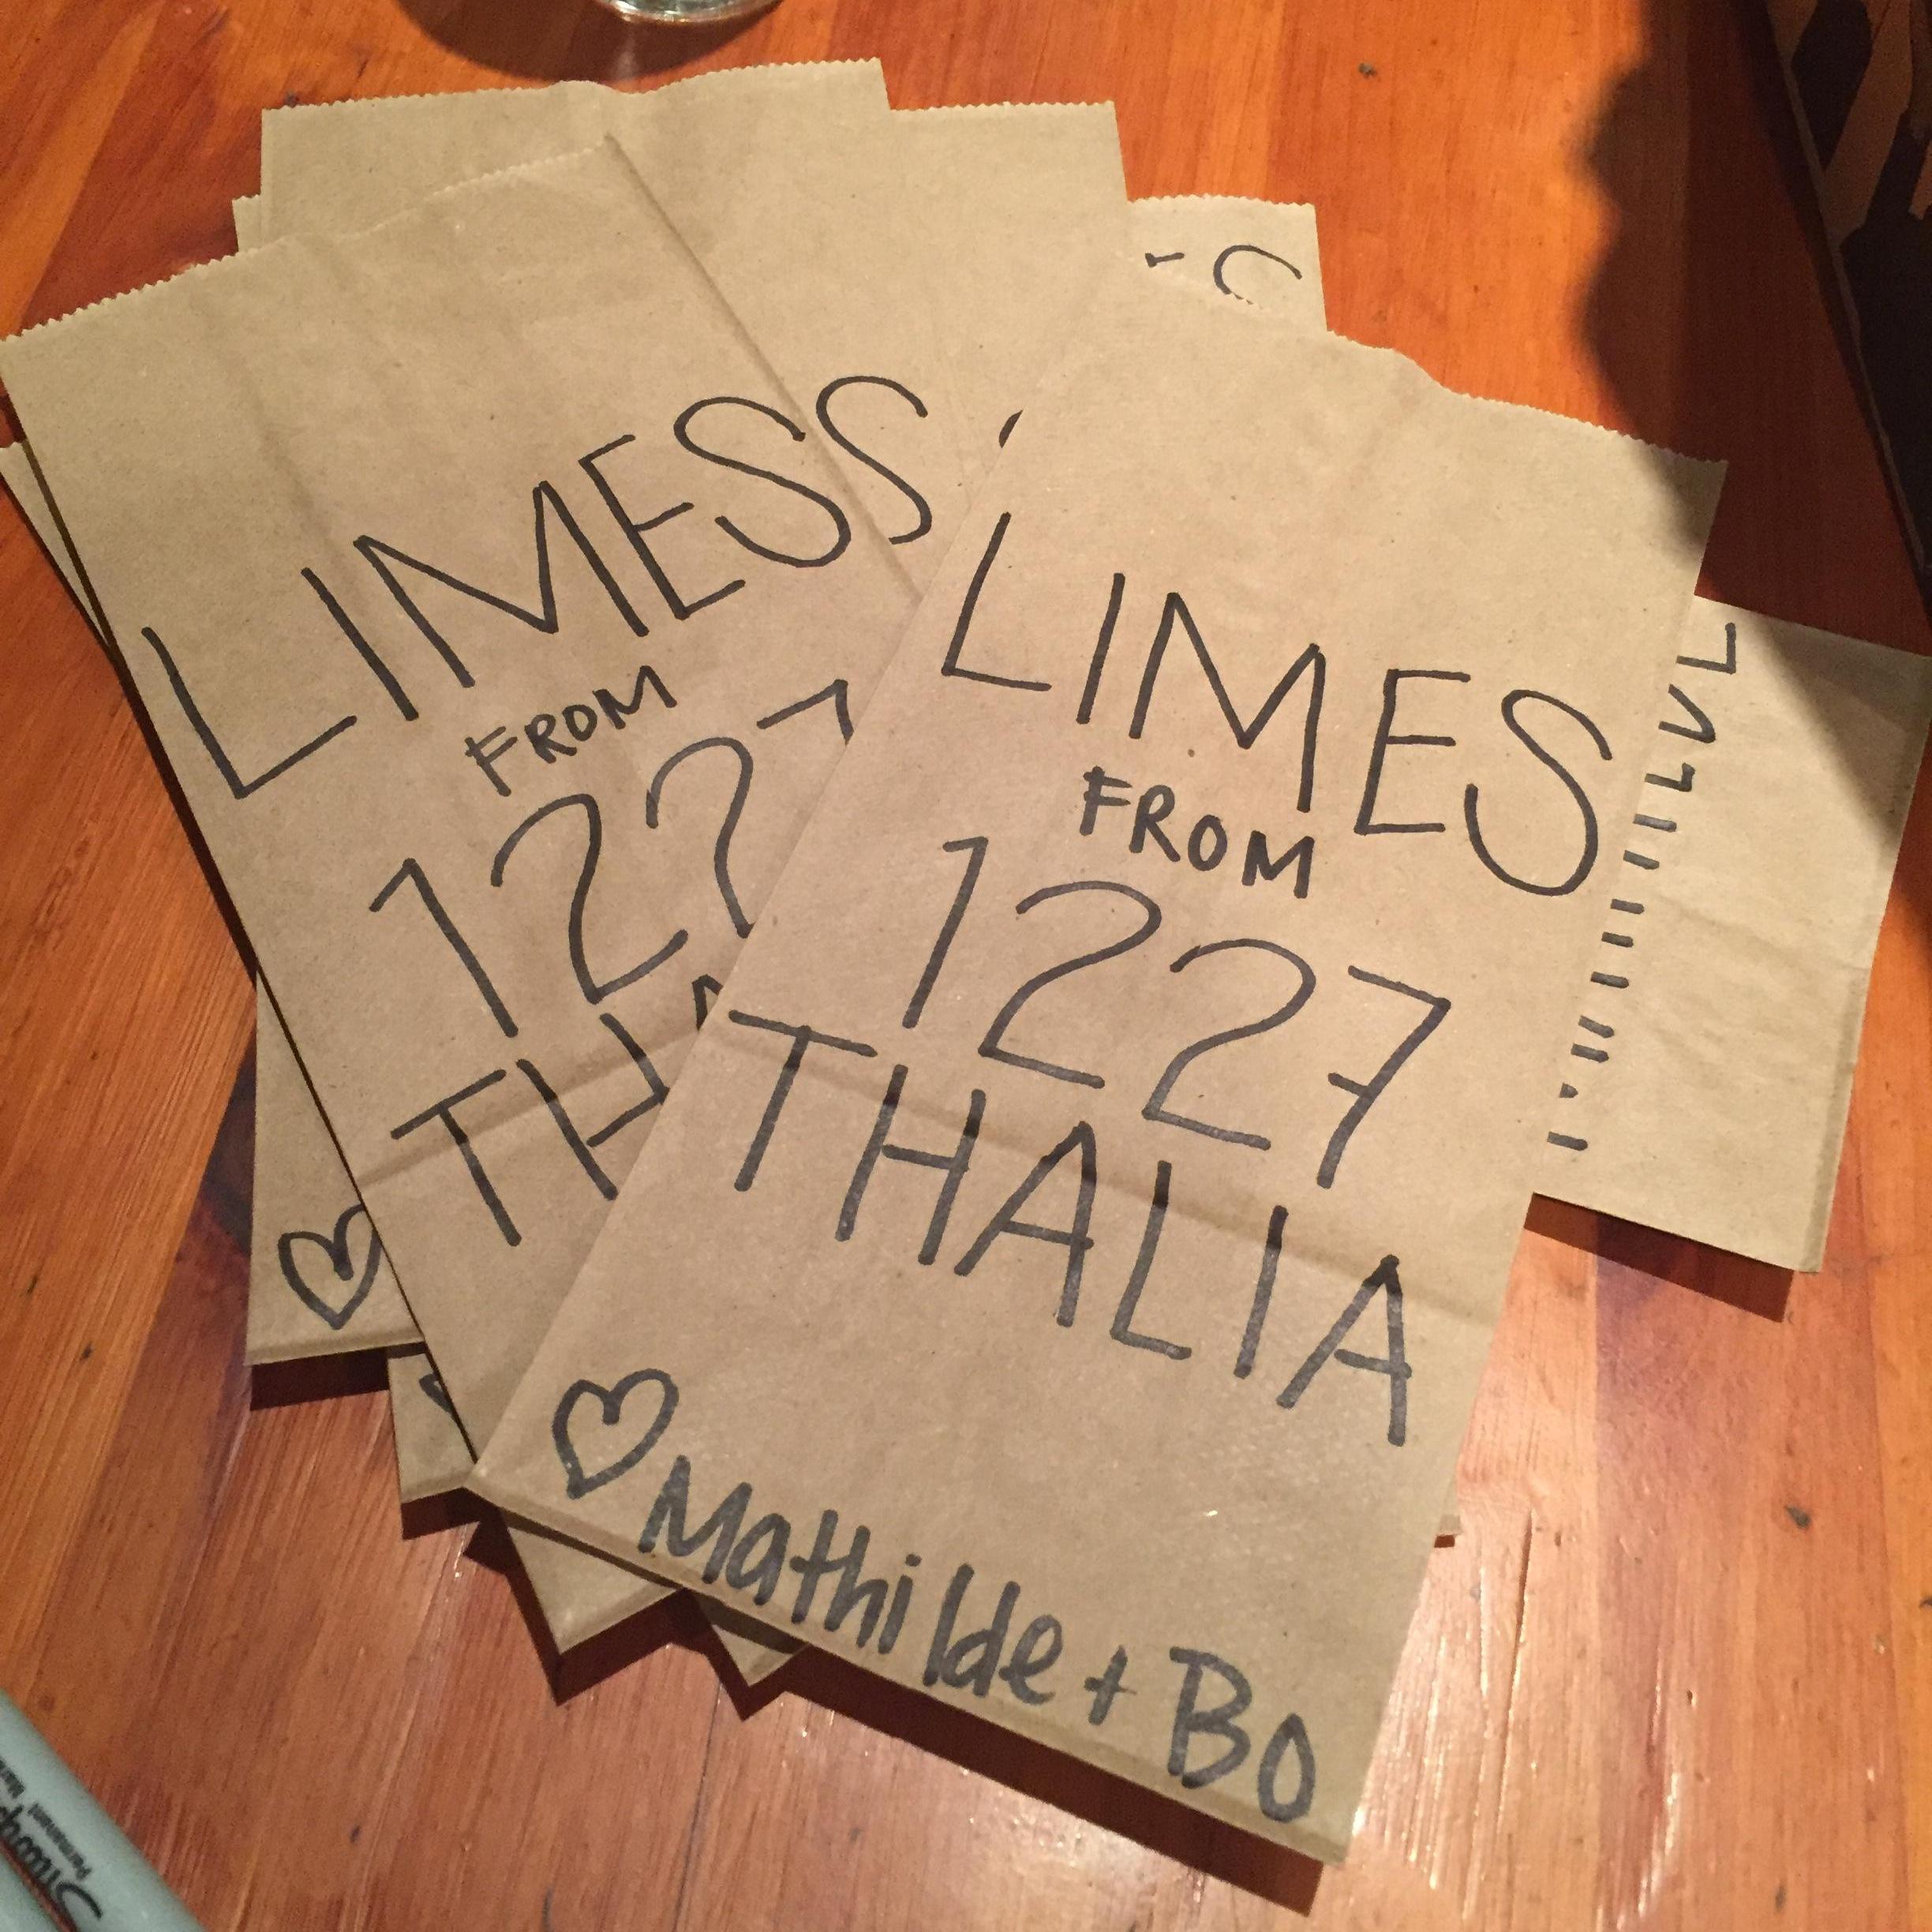 LIMES
FROM
1227
THA
S
LIMES
FROM
1227
THALIA
♡ Mathilde + Bo
Permanent